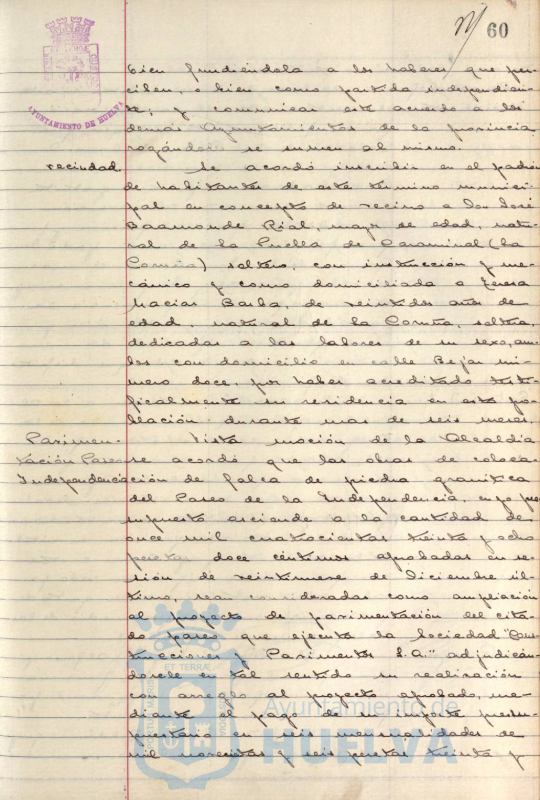 60
AYUNTAMIENTO DE HUELVA
bien fundiéndola a los haberes que per-
ciben, o bien como partida independien-
te; y comunicar este acuerdo a los
demás Ayuntamientos de la provincia
rogándoles se sumen al mismo.
Vecindad.
Se acordó inscribir en el padrón
de habitantes de este término munici-
pal en concepto de vecino a Don José
Baamonde Rial, mayor de edad, natu-
ral de la Puebla de Caramiñal (La
Coruña) soltero, con instrucción y me-
cánico y como domiciliada a Teresa
Macias Barba, de veintidos años de
edad, natural de La Coruña, soltera,
dedicadas a las labores de su sexo, am-
bos con domicilio en calle Bejar nú-
mero doce, por haber acreditado testi-
ficalmente su residencia en esta po-
blación durante mas de seis meses.
Pavimen-
tación Paseo
Independencia
Vista moción de la Alcaldía
se acordó que las obras de coloca-
ción de falca de piedra granitica
del Paseo de la Independencia, cuyo pre-
supuesto asciende a la cantidad de
once mil cuatrocientas treinta y ocho
pesetas doce céntimos aprobadas en se-
sión de veintinueve de Diciembre úl-
timo, sean consideradas como ampliación
al proyecto de pavimentación del cita-
do paseo que ejecuta la Sociedad "Cons-
trucciones y Pavimentos S.A." adjudicán-
dosele en tal sentido su realización
con arreglo al proyecto aprobado, me-
diante el pago de su importe presu-
puestario en seis mensualidades de
mil novecientas y seis pesetas treinta y
Ayuntamiento de
HUELVA